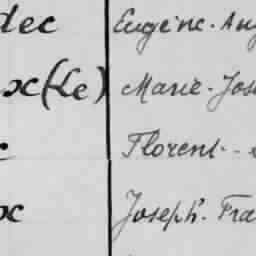 dec Eugène-Aug
x(Le) Marie-Jos
Florent-
x Joseph-Fra